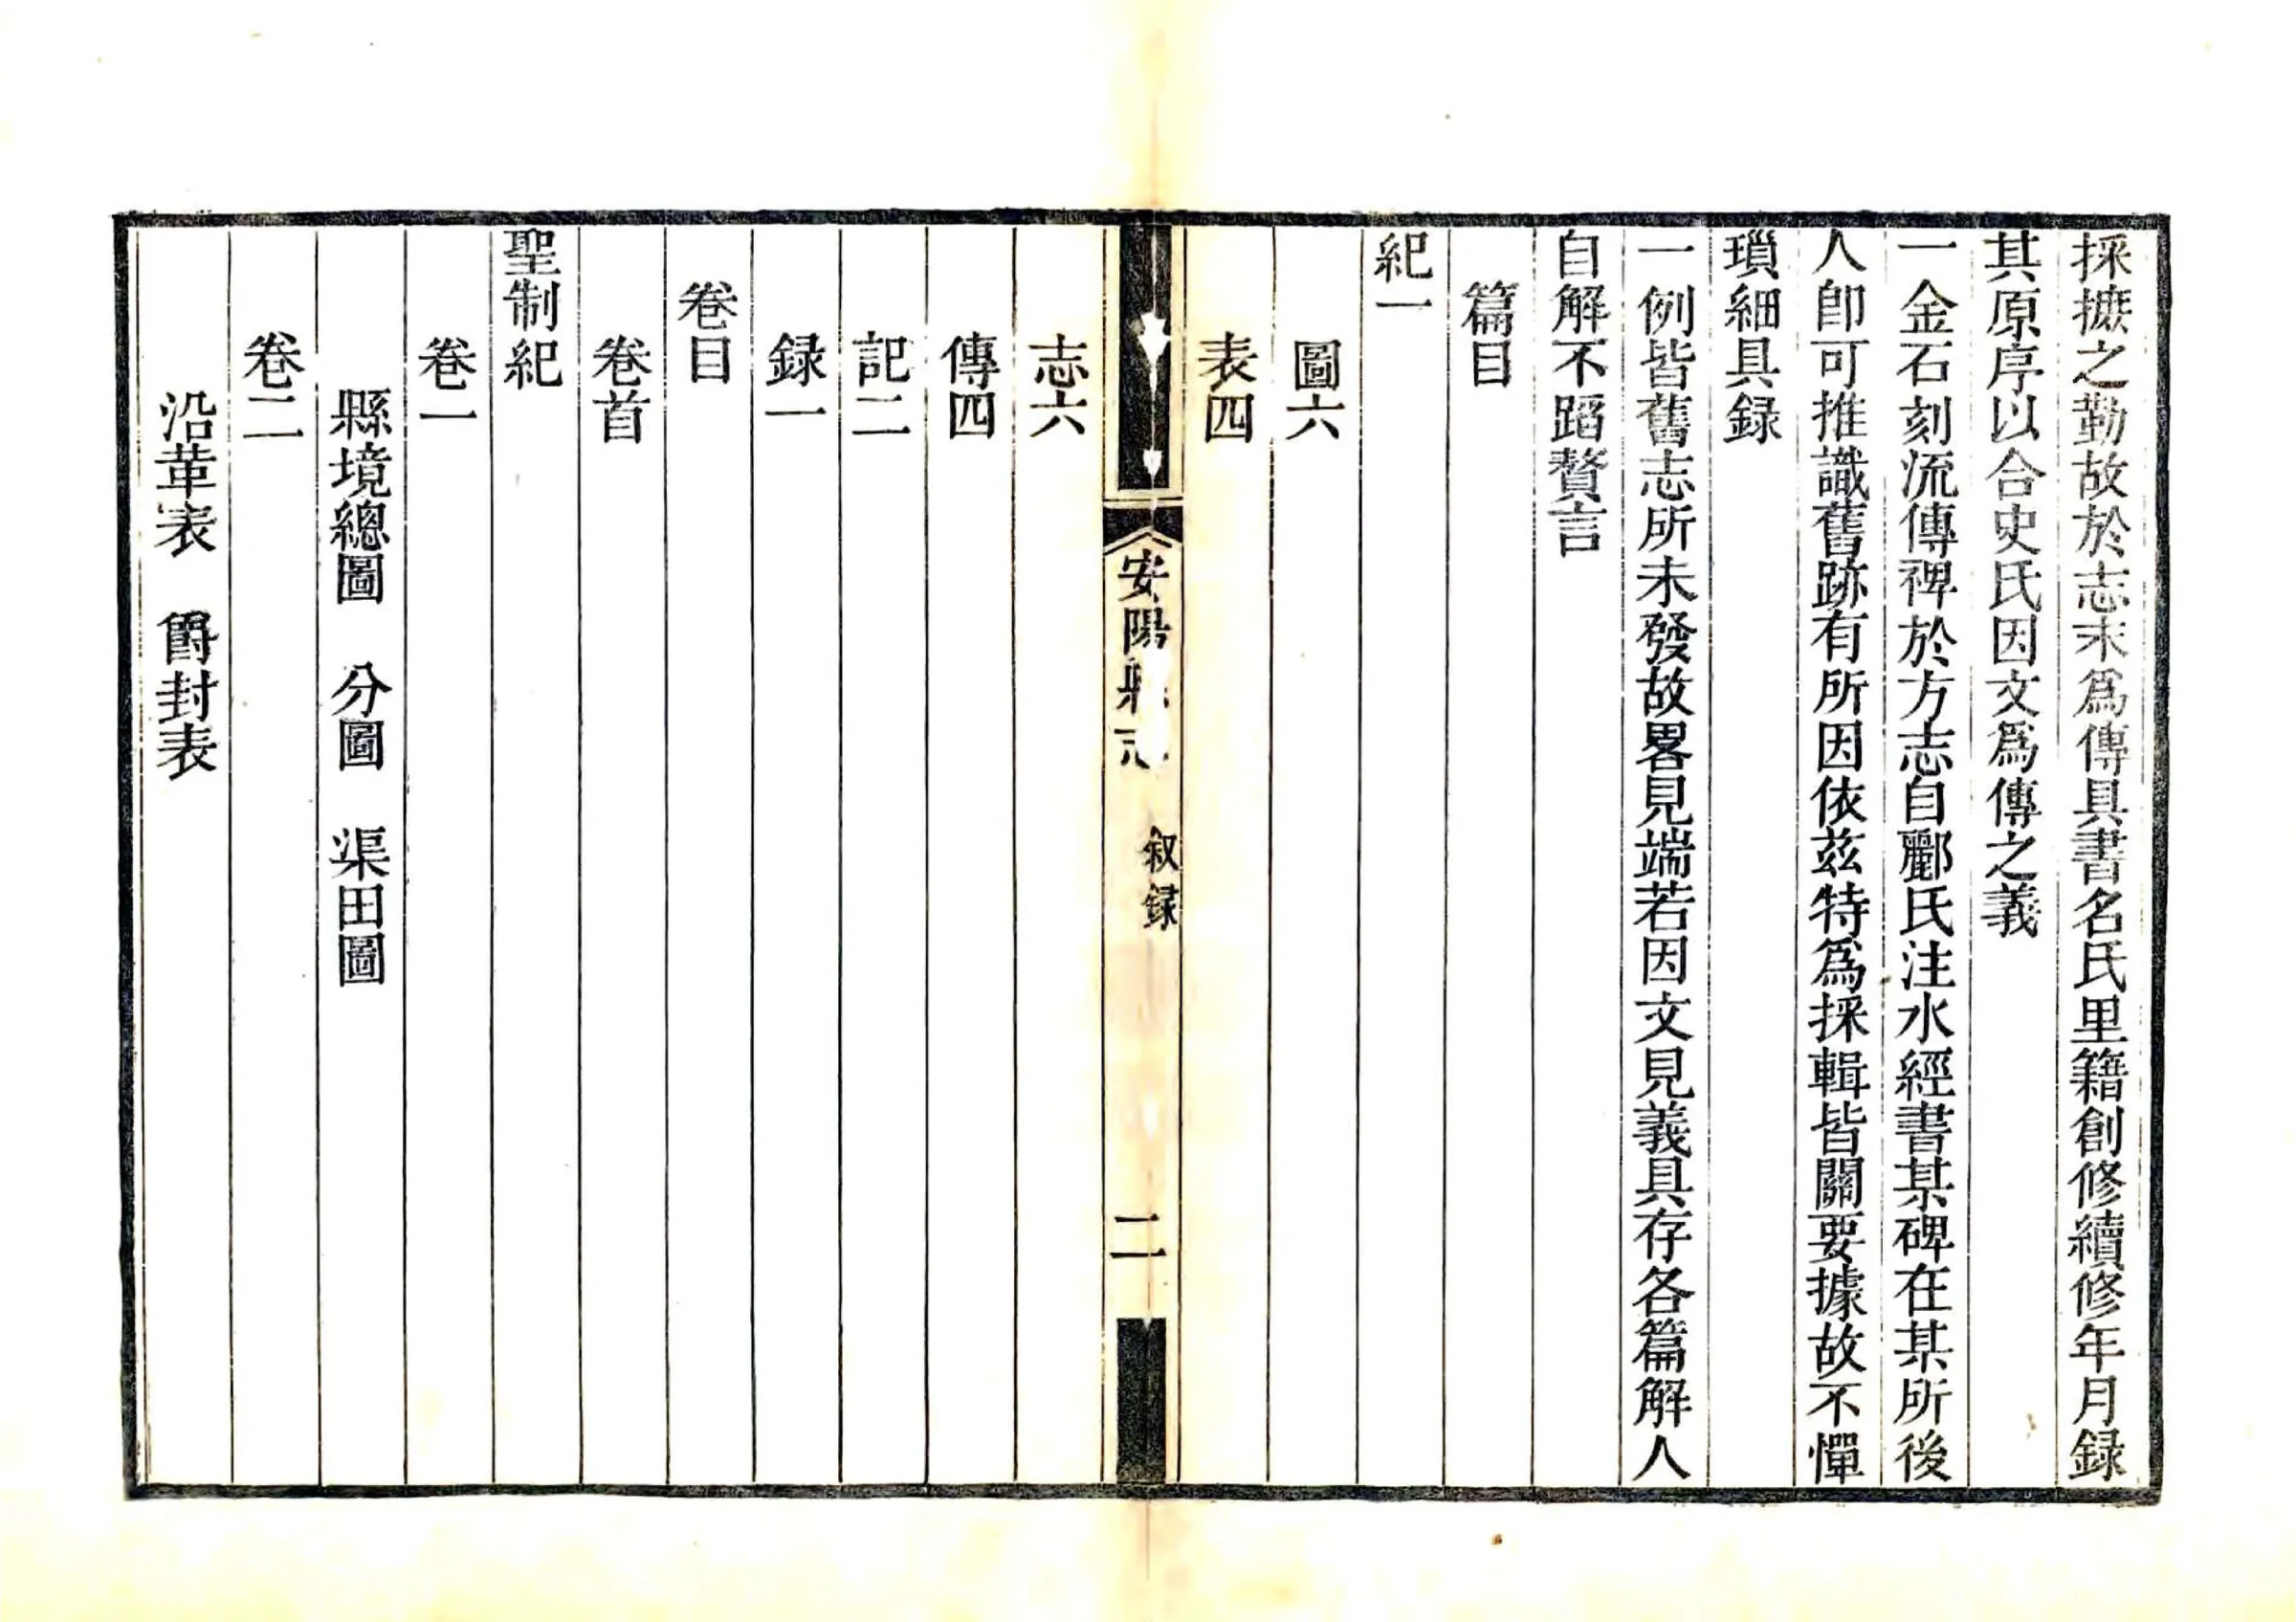 採摭之勤故於志末爲傳具書名氏里籍創修續修年月録
其原序以合史氏因文爲傳之義
一金石刻流傳裨於方志自酈氏注水經書某碑在某所後
人卽可推識舊跡有所因依兹特爲採輯皆關要據故不憚
瑣細具録
一例皆舊志所未發故畧見端若因文見義具存各篇解人
自解不蹈贅言
篇目
紀一
圖六
表四
安陽縣志 叙録 二
志六
傳四
記二
録一
卷目
卷首
聖制紀
卷一
縣境總圖 分圖 渠田圖
卷二
沿革表 爵封表